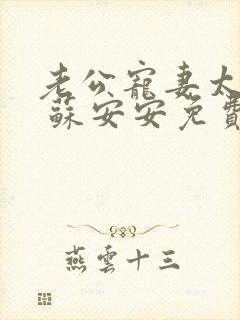 老公寵妻太
蘇安安免費
燕雲十三